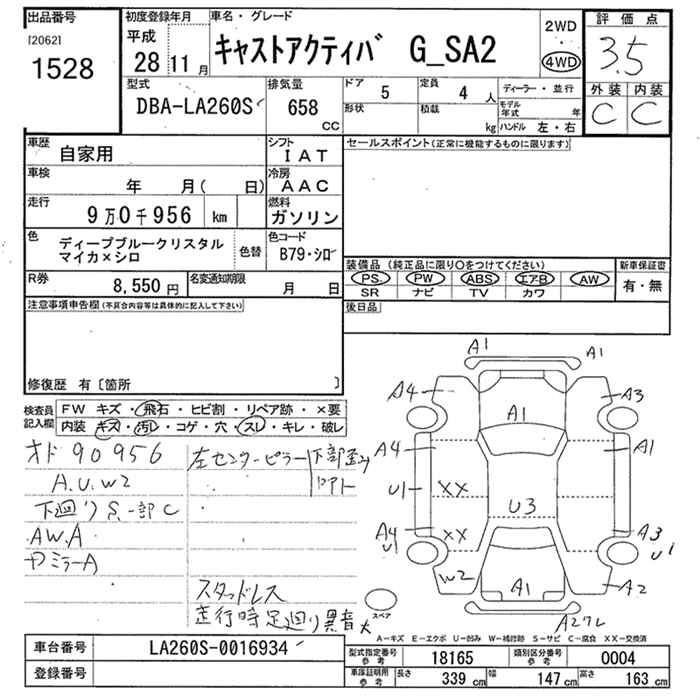 出品番号
[2062]
1528
初度登録年月
平成
28 11 月
車名・グレード
キャストアクティバ G_SA2
2WD
4WD
評価点
3.5
外装 内装
C C
型式
DBA-LA260S
排気量
658
cc
ドア
5
定員
4 人
形状
積載
kg
ディーラー・並行
モデル年式 年
ハンドル 左・右
車歴
自家用
シフト
IAT
車検
年 月( 日)
冷房
AAC
走行
9万0千956 km
燃料
ガソリン
色
ディープブルークリスタル
マイカ×シロ
色替
色コード
B79・シロ
R券
8,550 円
名変通知期限
月 日
セールスポイント(正常に機能するものに限ります)
装備品 (純正品に限り〇をつけてください)
PS PW ABS エアB AW
SR ナビ TV カワ
新車保証書
有・無
後日品
注意事項申告欄(不具合内容等は具体的に記入して下さい)
修復歴 有〔箇所 〕
検査員
記入欄
FW キズ・飛石・ヒビ割・リペア跡・×要
内装 キズ・汚レ・コゲ・穴・スレ・キレ・破レ
オド 90956
A.U.W2
下廻りS.一部C
AW.A
左センターピラー下部歪み
スタッドレス
走行時足廻り異音大
A1
A1
A4
A3
A1
A4
A1
U1
XX
U3
A4
U1
XX
A3
U1
W2
A1
A2
スペア
A-キズ E-エクボ U-凹み W-補修跡 S-サビ C-腐食 XX-交換済
車台番号
LA260S-0016934
登録番号
型式指定番号
参考
18165
類別区分番号
参考
0004
車庫証明用
参考
長さ
339 cm
幅
147 cm
高さ
163 cm